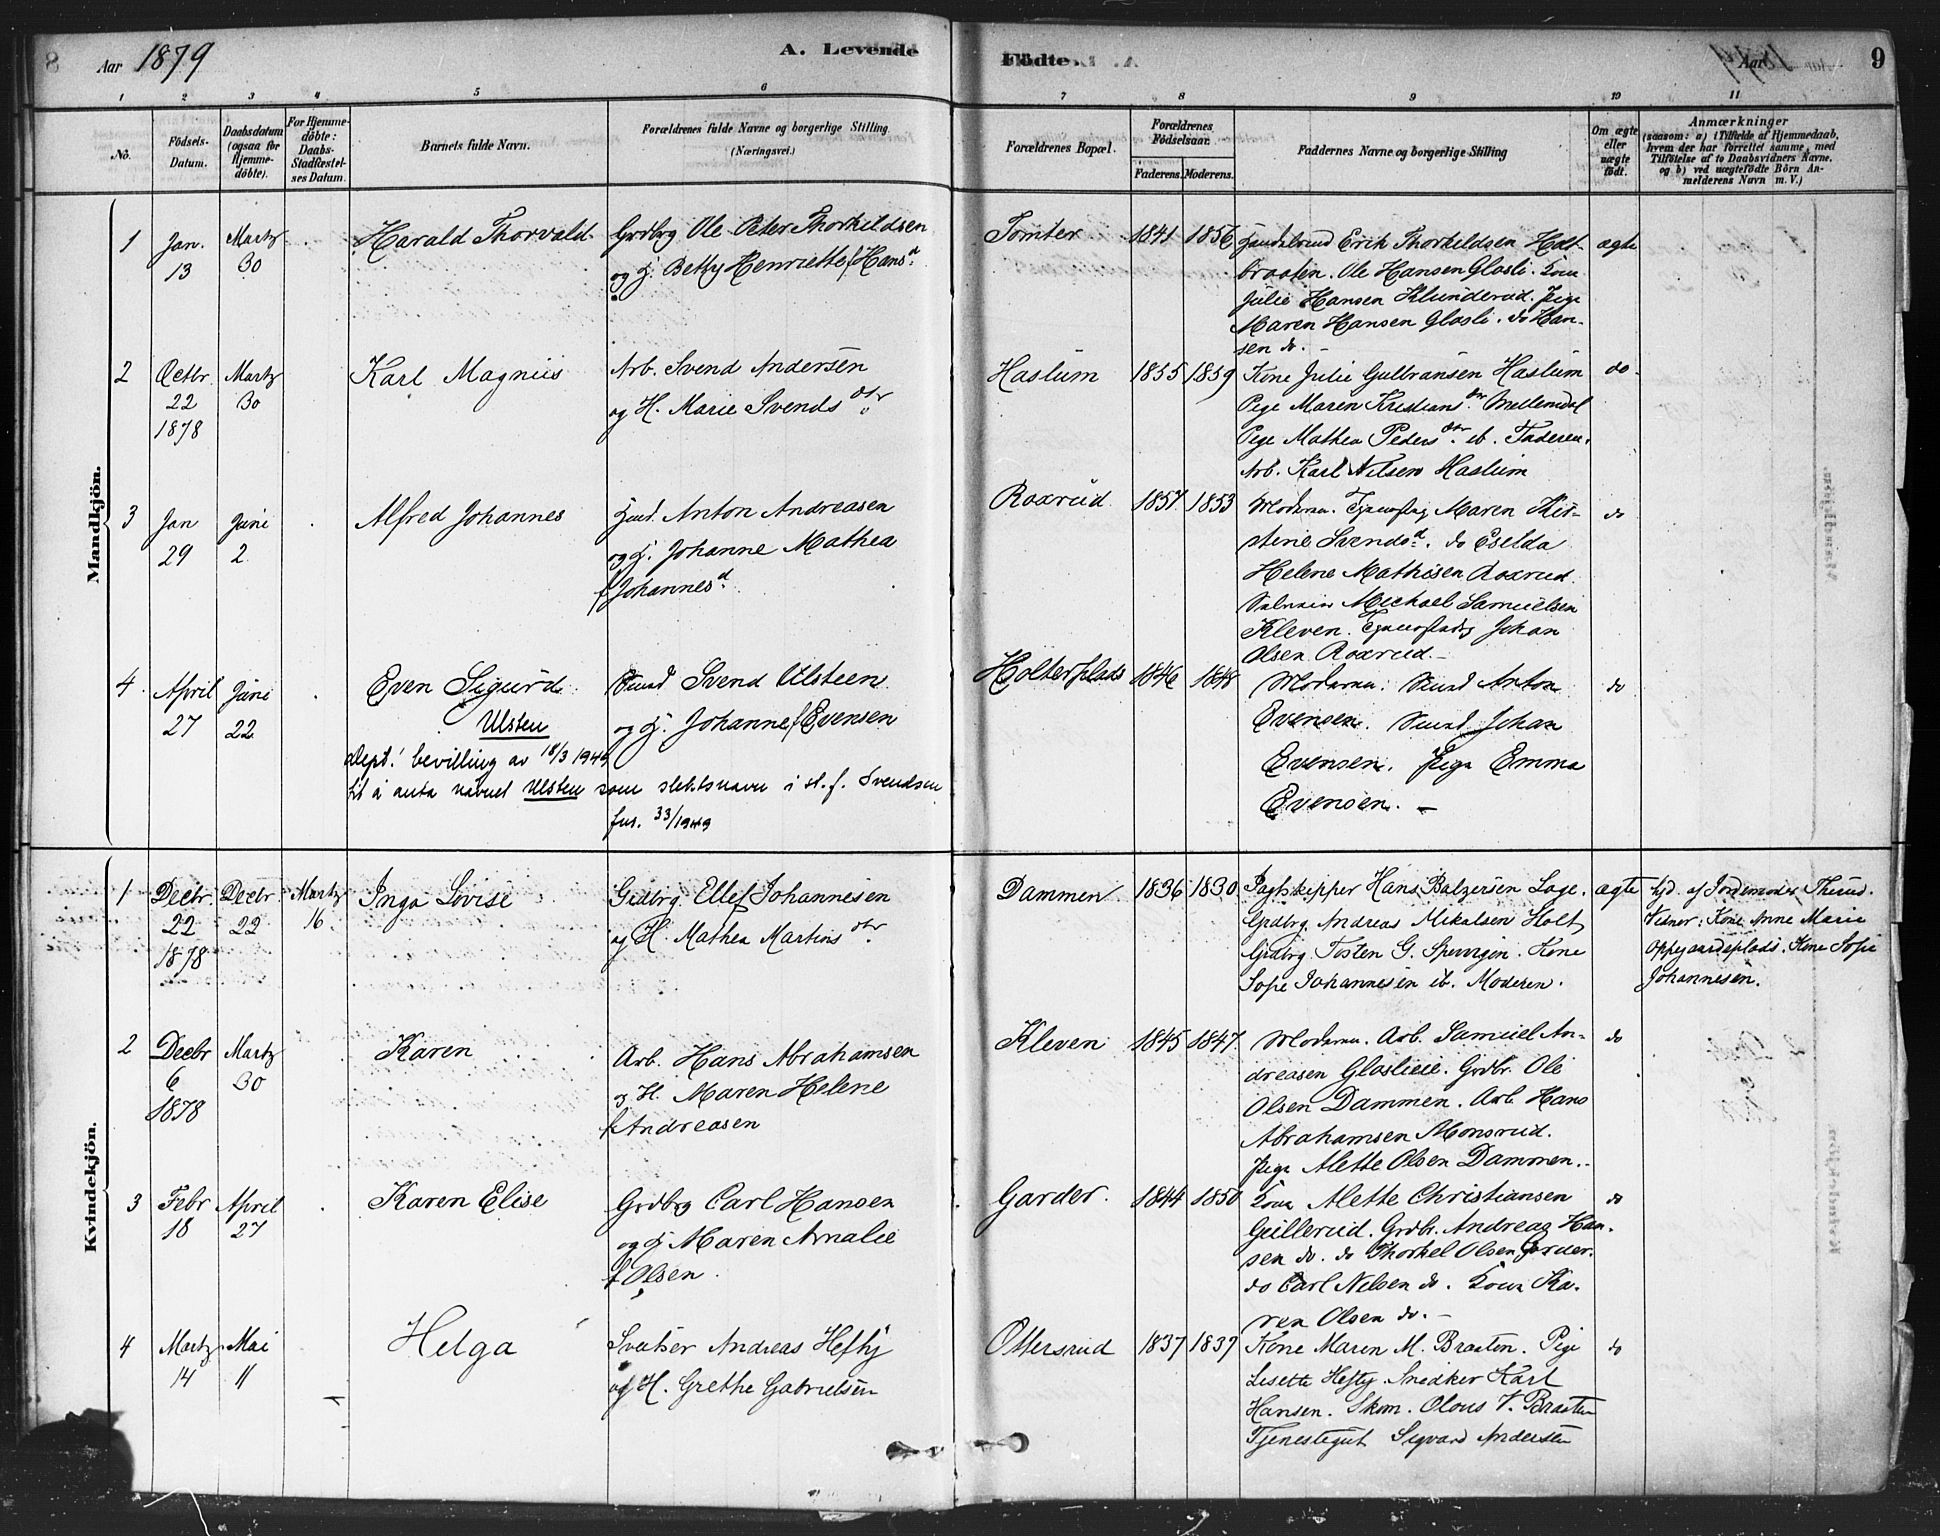 8
Aar 1879
A. Levende
Födte.
Aar
9
1 2 3 4 5 6 7 8 9 10 11
No.
Födsels-Datum.
Daabsdatum (ogsaa for Hjemme-döbte).
For Hjemme-döbte: Daabs-Stadfæstel-ses Datum.
Barnets fulde Navn.
Forældrenes fulde Navne og borgerlige Stilling. (Næringsvei.)
Forældrenes Bopæl.
Forældrenes Födselsaar.
Faderens. Moderens.
Faddernes Navne og borgerlige Stilling
Om ægte eller uægte födt.
Anmærkninger
(saasom: a) i Tilfælde af Hjemmedaab, hvem der har forrettet samme, med Tilföielse af to Daabsvidners Navne, og b) ved uægtefödte Börn An-melderens Navn m. V.)
Mandkjön.
1
Jan. 13
Martz 30
Harald Thorvald
Grdbrg Ole Peter Thorkildsen
og H. Betzy Henriette f Hansd.
Tomter
1841 1856
Gaardbrud Erik Thorkildsen Holt-
braaten. Ole Hansen Glosli. Kone
Julie Hansen Klunderud. Pige
Maren Hansen Glosli. do Han-
sen do. –
ægte
2
Octbr. 22 1878
Martz 30
Karl Magnus
Arb. Svend Andersen
og H. Marie Svendsdtr.
Haslum
1855 1859
Kone Julie Gulbransen Haslum
Pige Maren Kristiansdtr. Mellemdal
Pige Mathea Pedersdtr. ib. Faderen.
Arb. Karl Nilsen Haslum
do
3
Jan 29
Juni 2
Alfred Johannes
Anton Andreasen
og H. Johanne Mathea
f Johannesd.
Roxrud
1857 1853
Moderen. Maren Kir-
stine Svendsd. do Eselda
Helene Mathisen Roxrud.
Michael Samuelsen
Kleven. Johan
Olsen Roxrud –
do
4.
April 27
Juni 22
Even Sigurd
Ulsten
Svend Ulsteen
og H. Johanne f Evensen
Dept! bevilling av 18/3 1949
til å anta navnet Ulsten som slektsnavn i st. f. Svendsen
jnr. 33/1949
Holterplads
1846 1848
Moderen. Anton
Evensen. Johan
Evensen. Pige Emma
Evensen. –
do
Kvindekjön.
1
Decbr. 22 1878
Decbr 22
Martz 16
Inga Lovise
Grdbrg. Ellef Johannesen
og H. Mathea Martinsdtr.
Dammen
1836 1830
Jagtskipper Hans Balzersen Lage.
Grdbrg. Andreas Mikalsen Holt
Grdbrg. Tosten G. Spervigen. Kone
Sofie Johannesen ib. Moderen.
ægte
hjd. af Jordemoder Thiud.
Vidner: Kone Anne Marie
Oppegaardsplads. Kone Sofie
Johannesen.
2
Decbr 6 1878
Martz 30
Karen
Arb. Hans Abrahamsen
og H. Maren Helene
f Andreasen
Kleven
1845 1847.
Moderen. Arb. Samuel An-
dreasen Gloslieie. Grdbr. Ole
Olsen Dammen. Arb. Hans
Abrahamsen Monsrud.
Pige Alette Olsen Dammen.
do
3
Febr 18
April 27
Karen Elise
Grdbrg Carl Hansen
og H Maren Amalie
f Olsen.
Garder.
1844 1850
Kone Alette Christiansen
Gullerud. Grdbr. Andreas Han-
sen do. do Thorkel Olsen Garder.
do Carl Nelsen do. Kone Ka-
ren Olsen do. –
do
4
Martz 14
Mai 11
Helga
Sveitser Andreas Hefty
og H. Grethe Gabrielsen
Ottersrud
1837 1837
Kone Maren M. Braaten. Pige
Lisette Hefty. Snedker Karl
Hansen. Skom. Olous V. Braaten
Tjenestegut Sigvard Andersen
do